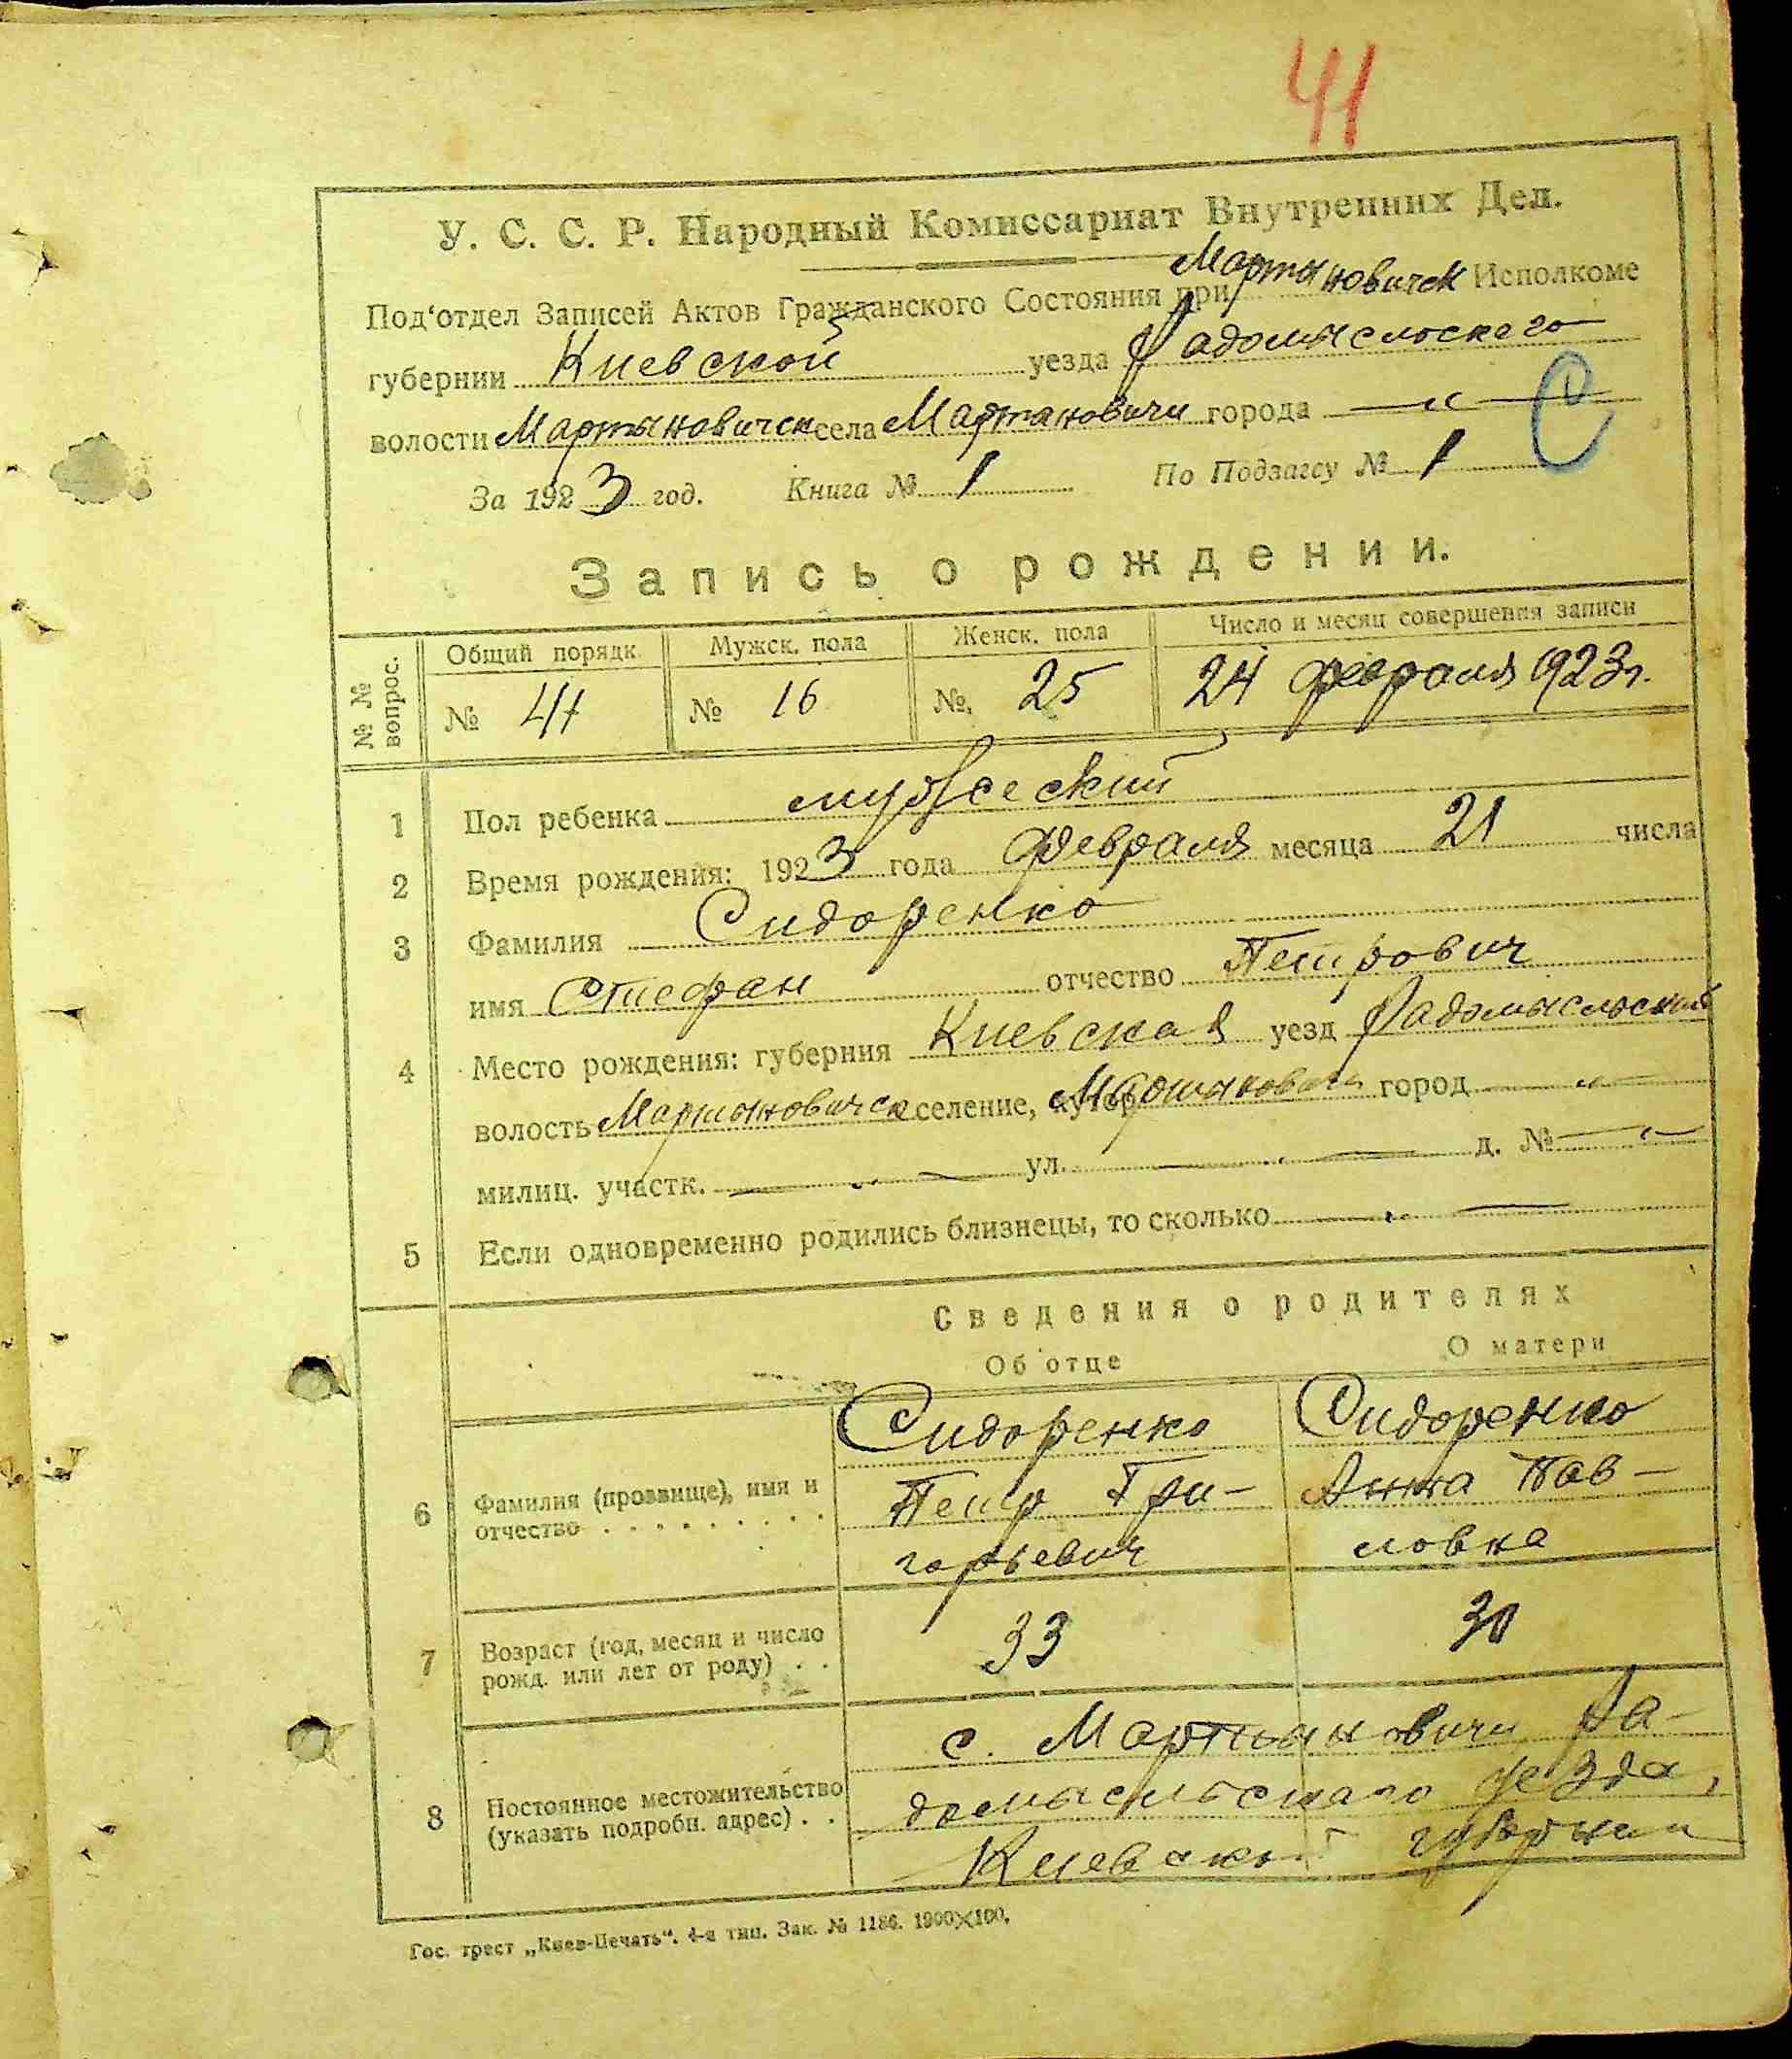 41
У. С. С. Р. Народный Комиссариат Внутренних Дел.
Под'отдел Записей Актов Гражданского Состояния при Мартыновичск Исполкоме
губернии Киевской уезда Радомысльского
волости Мартыновичск села Мартановичи города — „ — С
За 1923 год. Книга № 1 По Подзагсу № 1
Запись о рождении.
№ № вопрос. Общий порядк. Мужск. пола Женск. пола Число и месяц совершения записи
№ 41 № 16 №. 25 24 февраля 923 г.
1 Пол ребенка мужеский
2 Время рождения: 1923 года февраля месяца 21 числа
3 Фамилия Сидоренко
имя Стефан отчество Петрович
4 Место рождения: губерния Киевская уезд Радомысльский
волость Мартыновичск селение, хутор Мартыновичи город — „ —
милиц. участк. — „ — ул. — „ — д. № — „ —
5 Если одновременно родились близнецы, то сколько — „ —
Сведения о родителях
Об отце О матери
6 Фамилия (прозвище), имя и отчество . . . . . . . . .
Сидоренко
Петр Гри-
горьевич
Сидоренко
Анна Пав-
ловна
7 Возраст (год, месяц и число рожд. или лет от роду) . . 33 30
8 Постоянное местожительство (указать подробн. адрес) . .
с. Мартыновичи Ра-
домысльскаго уезда,
Киевской губернии
Гос. трест „Киев-Печать“. 4-я тип. Зак. № 1186. 1900×100.